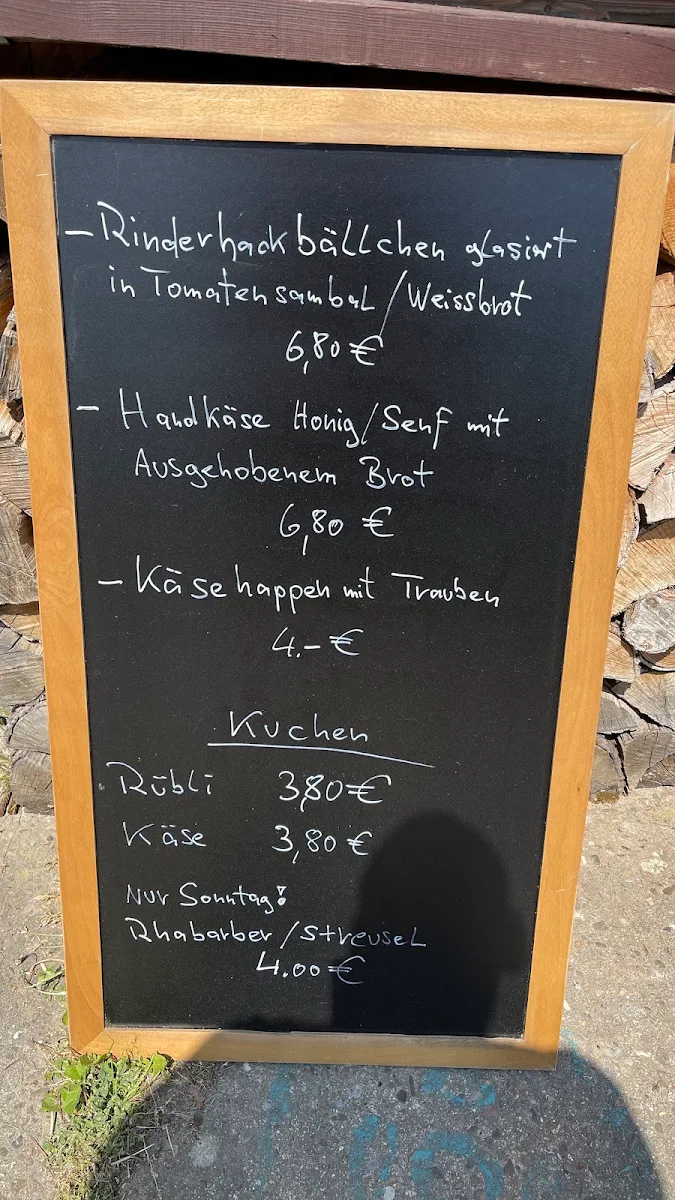 - Rinderhackbällchen glasiert
in Tomatensambal / Weissbrot
6,80 €
- Handkäse Honig/Senf mit
Ausgehobenem Brot
6,80 €
- Käsehappen mit Trauben
4.- €
Kuchen
Rübli 3,80 €
Käse 3,80 €
Nur Sonntag!
Rhabarber/Streusel
4.00 €